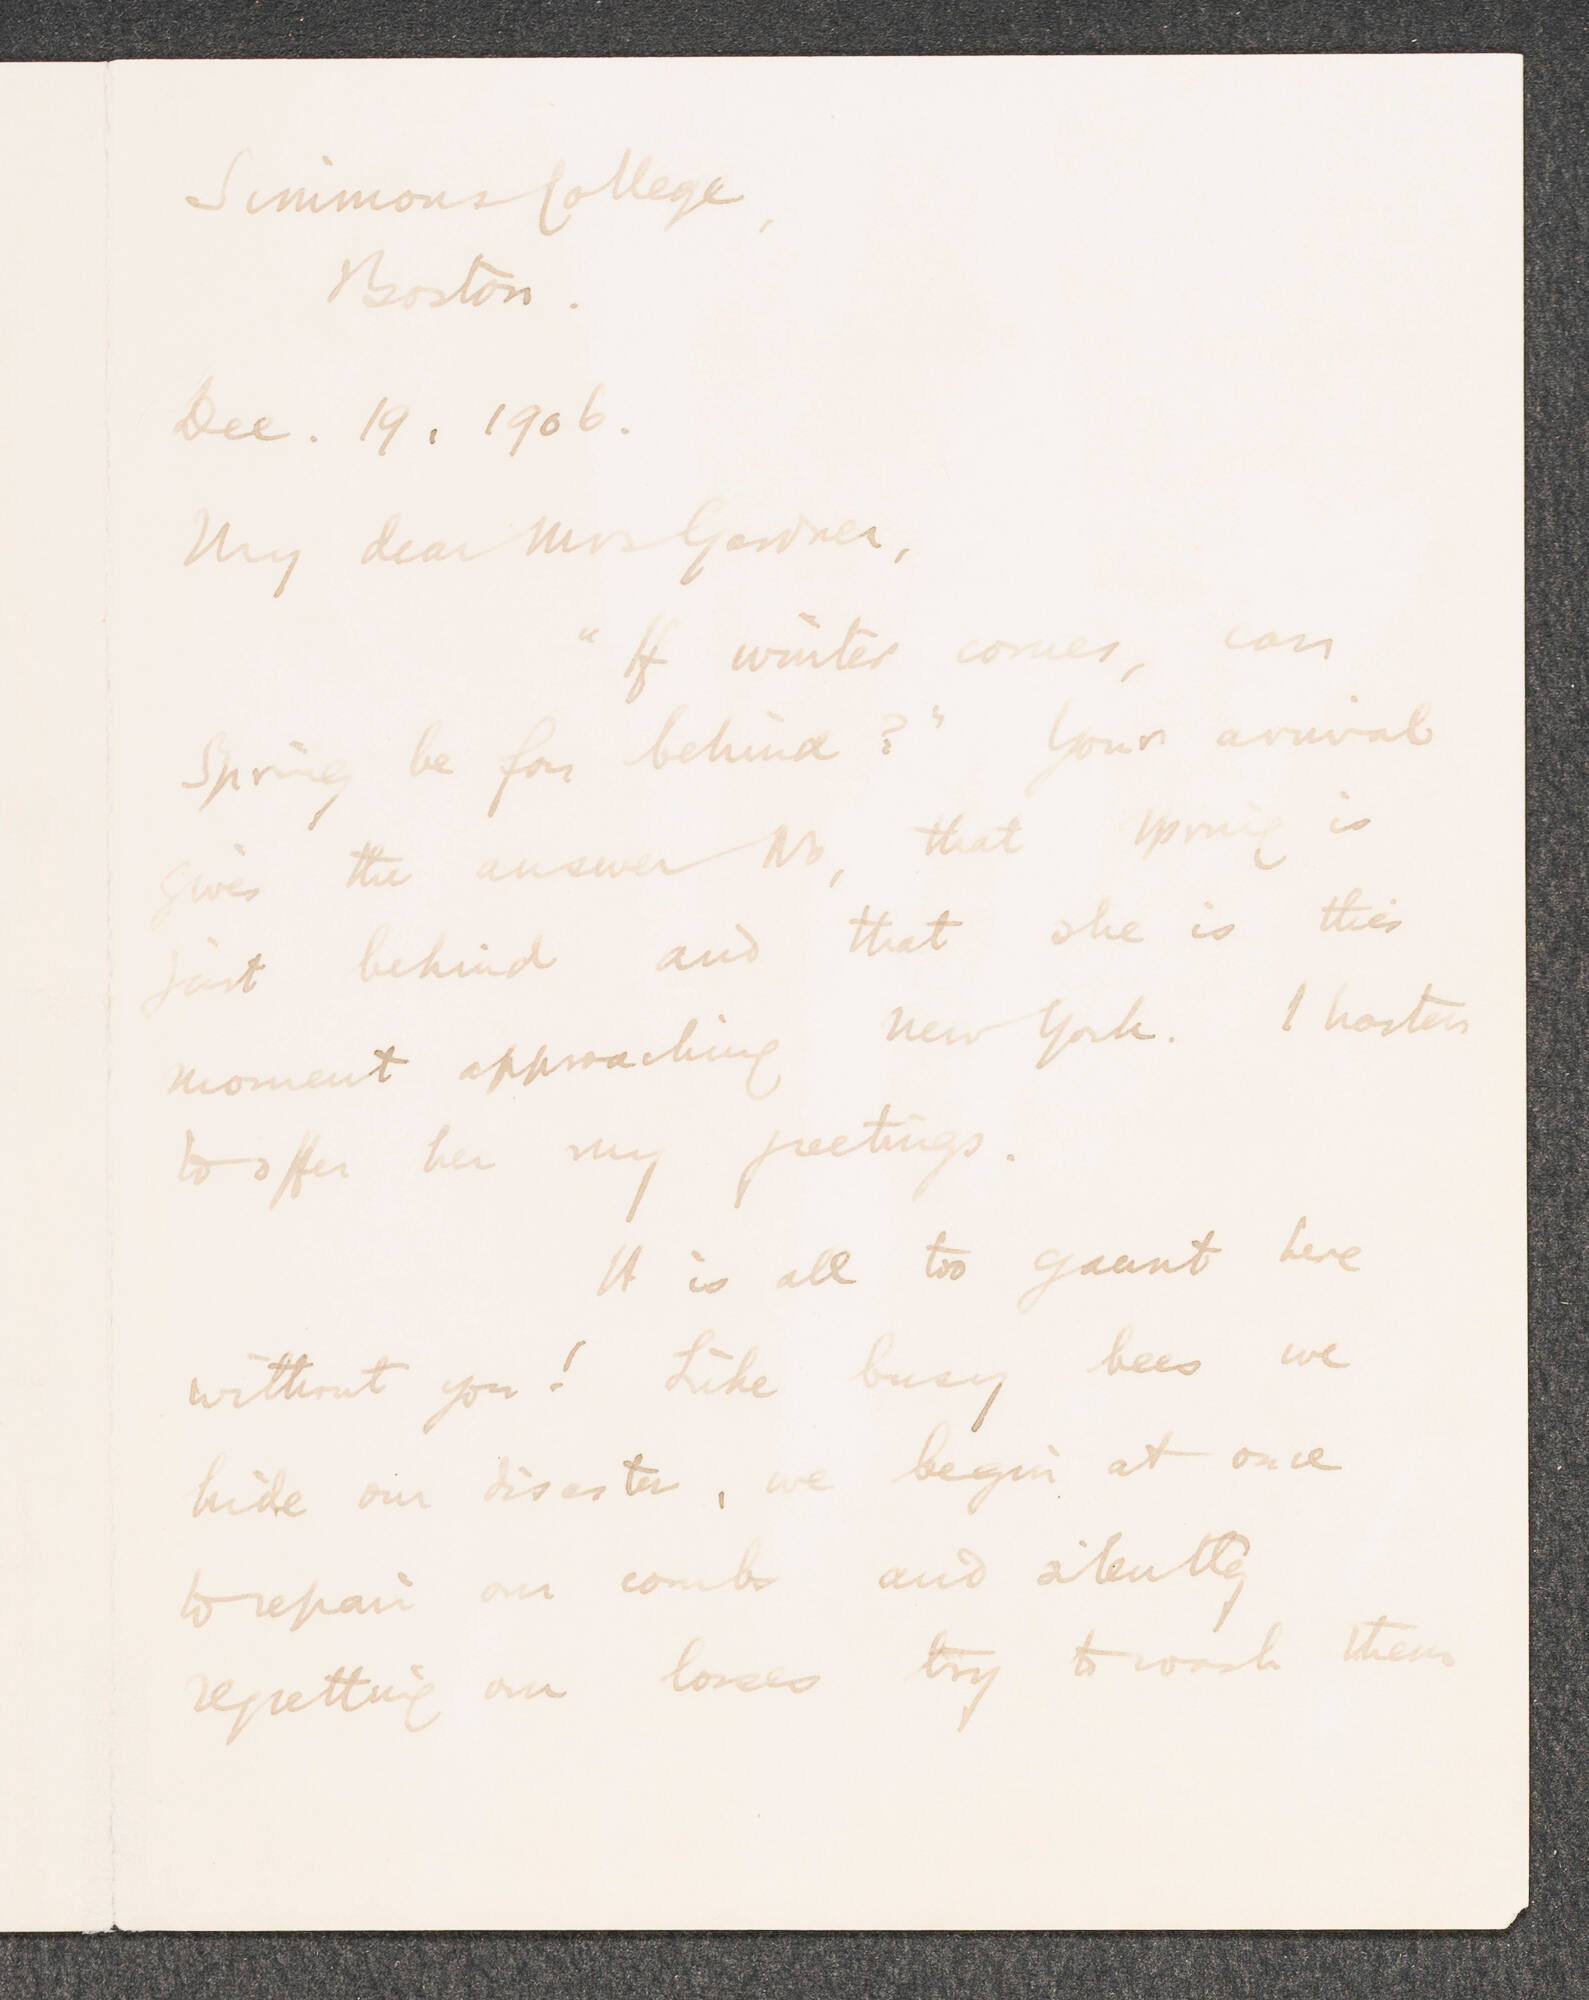 Simmons College,
Boston.
Dec. 19, 1906.
My dear Mrs Gardner,
"If winter comes, can
Spring be far behind?" Your arrival
gives the answer No, that spring is
just behind and that she is this
moment approaching New York. I hasten
to offer her my greetings.
It is all too gaunt here
without you! Like busy bees we
hide our disaster, we begin at once
to repair our combs and silently
regretting our losses try to wash them